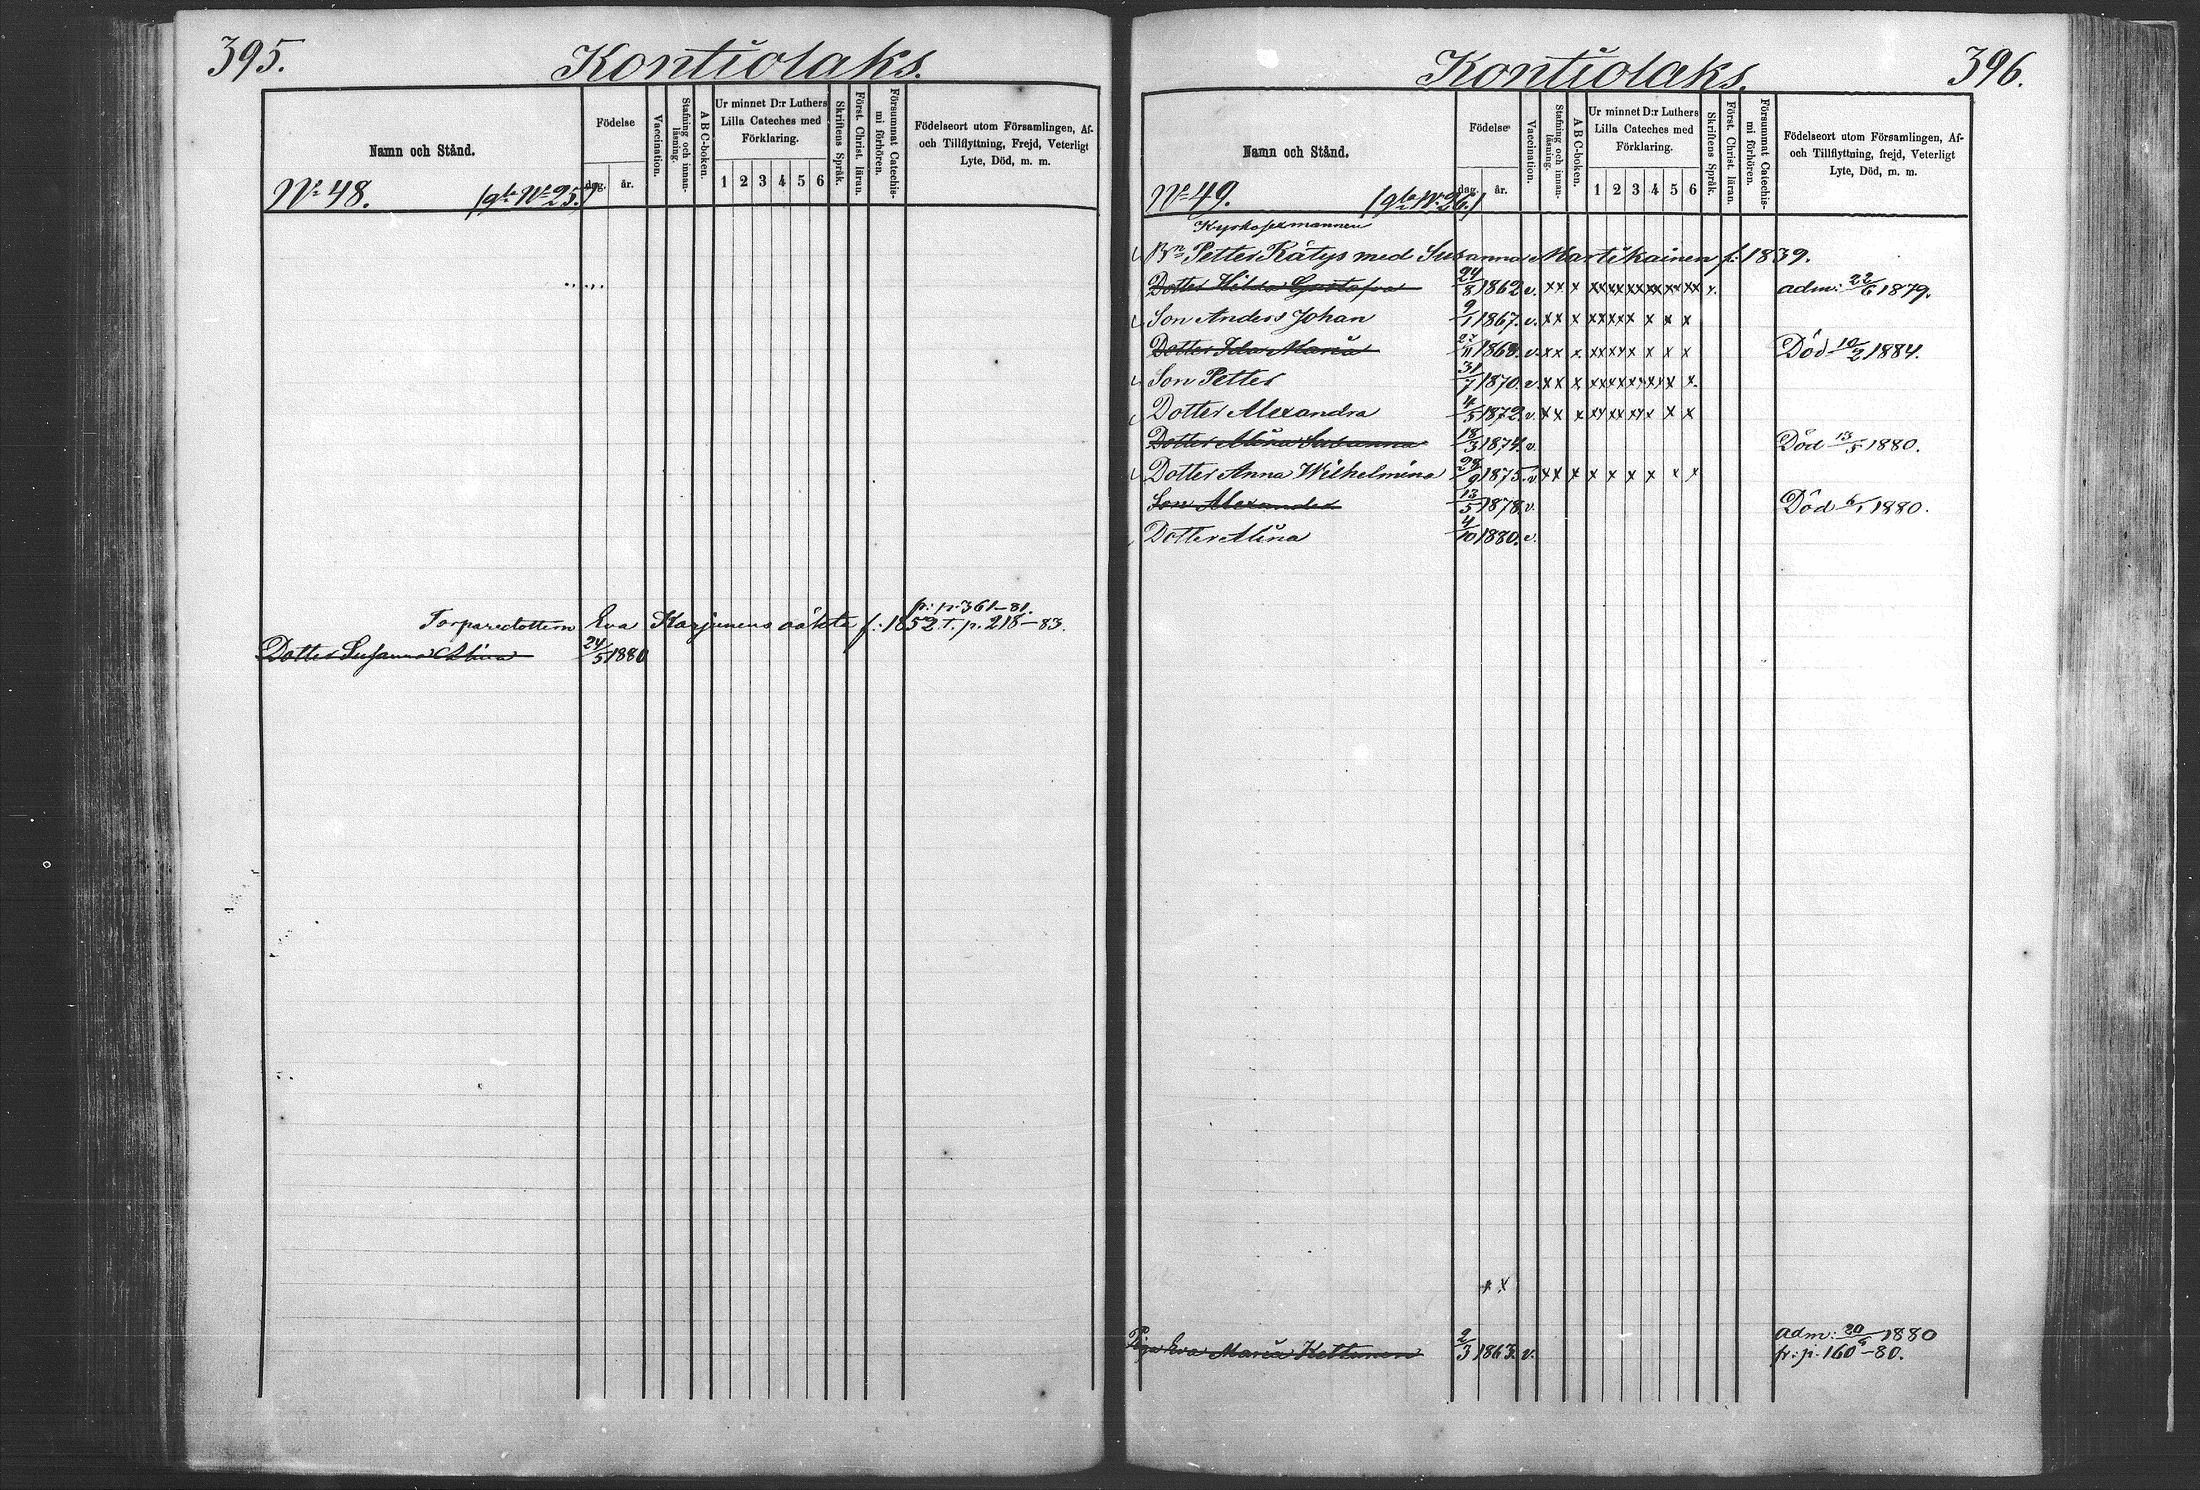 395.
Kontiolaks.
Namn och Stånd.
Födelse
dag.
år.
Vaccination.
Stafning och innan-
läsning.
A B C-boken.
Ur minnet D:r Luthers
Lilla Cateches med
Förklaring.
1 2 3 4 5 6
Skriftens Språk.
Först. Christ. läran.
Försummat Catechis-
mi förhören.
Födelseort utom Församlingen, Af-
och Tillflyttning, Frejd, Veterligt
Lyte, Död, m. m.
No 48. (gla No 25.)
fr: p. 361-81.
Torparedottern Eva Karjunens oäkta f: 1852. T. p. 218-83.
Dotter Susanna Albina 24/5 1880
396.
Kontiolaks.
Namn och Stånd.
Födelse
dag.
år.
Vaccination.
Stafning och innan-
läsning.
A B C-boken.
Ur minnet D:r Luthers
Lilla Cateches med
Förklaring.
1 2 3 4 5 6
Skriftens Språk.
Först. Christ. läran.
Försummat Catechis-
mi förhören.
Födelseort utom Församlingen, Af-
och Tillflyttning, frejd, Veterligt
Lyte, Död, m. m.
No 49. (gla No 26.)
Kyrkosexmannen
Bn Petter Rätys med Susanna Martikainen f: 1839.
Dotter Hilda Gustafva 24/8 1862. v. xx x xx xx xx xx xx xx x. adm: 22/6 1879.
Son Anders Johan 9/1 1867. v. xx x xx xx x x x x
Dotter Ida Maria 27/11 1868. v. xx x xx xx x x x x Död 10/2 1884.
Son Petter 31/7 1870. v. xx x xx xx xx xx x x.
Dotter Alexandra 4/5 1872. v. xx x xx xx xx x x x
Dotter Alina Susanna 18/3 1874. v. Död 13/5 1880.
Dotter Anna Wilhelmina 28/9 1875. v xx x x x x x x x
Son Alexander 13/5 1878. v. Död 6/1 1880.
Dotter Alina 4/10 1880. v.
x x
Piga Eva Maria Kettunen 2/3 1863. v. adm: 20/6 1880
fr: p. 160-80.